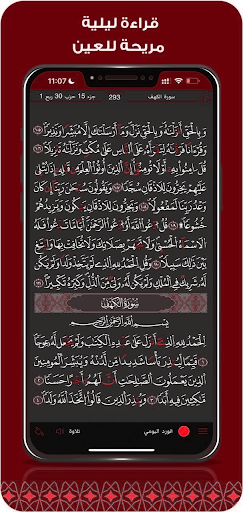 قراءة ليلية
مريحة للعين
11:07
سورة الكهف
293
جزء 15 حزب 30 ربع 1
وَبِالْحَقِّ أَنزَلْنَٰهُ وَبِالْحَقِّ نَزَلَ وَمَا أَرْسَلْنَٰكَ إِلَّا مُبَشِّرًا وَنَذِيرًا ١٠٥
وَقُرْءَانًا فَرَقْنَٰهُ لِتَقْرَأَهُ عَلَى النَّاسِ عَلَىٰ مُكْثٍ وَنَزَّلْنَٰهُ تَنزِيلًا ١٠٦
قُلْ ءَامِنُوا بِهِ أَوْ لَا تُؤْمِنُوا إِنَّ الَّذِينَ أُوتُوا الْعِلْمَ مِن قَبْلِهِ إِذَا يُتْلَىٰ
عَلَيْهِمْ يَخِرُّونَ لِلْأَذْقَانِ سُجَّدًا ١٠٧ وَيَقُولُونَ سُبْحَٰنَ رَبِّنَا إِن كَانَ
وَعْدُ رَبِّنَا لَمَفْعُولًا ١٠٨ وَيَخِرُّونَ لِلْأَذْقَانِ يَبْكُونَ وَيَزِيدُهُمْ
خُشُوعًا ١٠٩ قُلِ ادْعُوا اللَّهَ أَوِ ادْعُوا الرَّحْمَٰنَ أَيًّا مَّا تَدْعُوا فَلَهُ
الْأَسْمَاءُ الْحُسْنَىٰ وَلَا تَجْهَرْ بِصَلَاتِكَ وَلَا تُخَافِتْ بِهَا وَابْتَغِ
بَيْنَ ذَٰلِكَ سَبِيلًا ١١٠ وَقُلِ الْحَمْدُ لِلَّهِ الَّذِي لَمْ يَتَّخِذْ وَلَدًا وَلَمْ يَكُن
لَّهُ شَرِيكٌ فِي الْمُلْكِ وَلَمْ يَكُن لَّهُ وَلِيٌّ مِّنَ الذُّلِّ وَكَبِّرْهُ تَكْبِيرًا ١١١
سُورَةُ الْكَهْفِ
بِسْمِ اللَّهِ الرَّحْمَٰنِ الرَّحِيمِ
الْحَمْدُ لِلَّهِ الَّذِي أَنزَلَ عَلَىٰ عَبْدِهِ الْكِتَٰبَ وَلَمْ يَجْعَل لَّهُ عِوَجًا ١
قَيِّمًا لِّيُنذِرَ بَأْسًا شَدِيدًا مِّن لَّدُنْهُ وَيُبَشِّرَ الْمُؤْمِنِينَ
الَّذِينَ يَعْمَلُونَ الصَّٰلِحَٰتِ أَنَّ لَهُمْ أَجْرًا حَسَنًا ٢
مَّٰكِثِينَ فِيهِ أَبَدًا ٣ وَيُنذِرَ الَّذِينَ قَالُوا اتَّخَذَ اللَّهُ وَلَدًا ٤
الورد اليومي
تلاوة